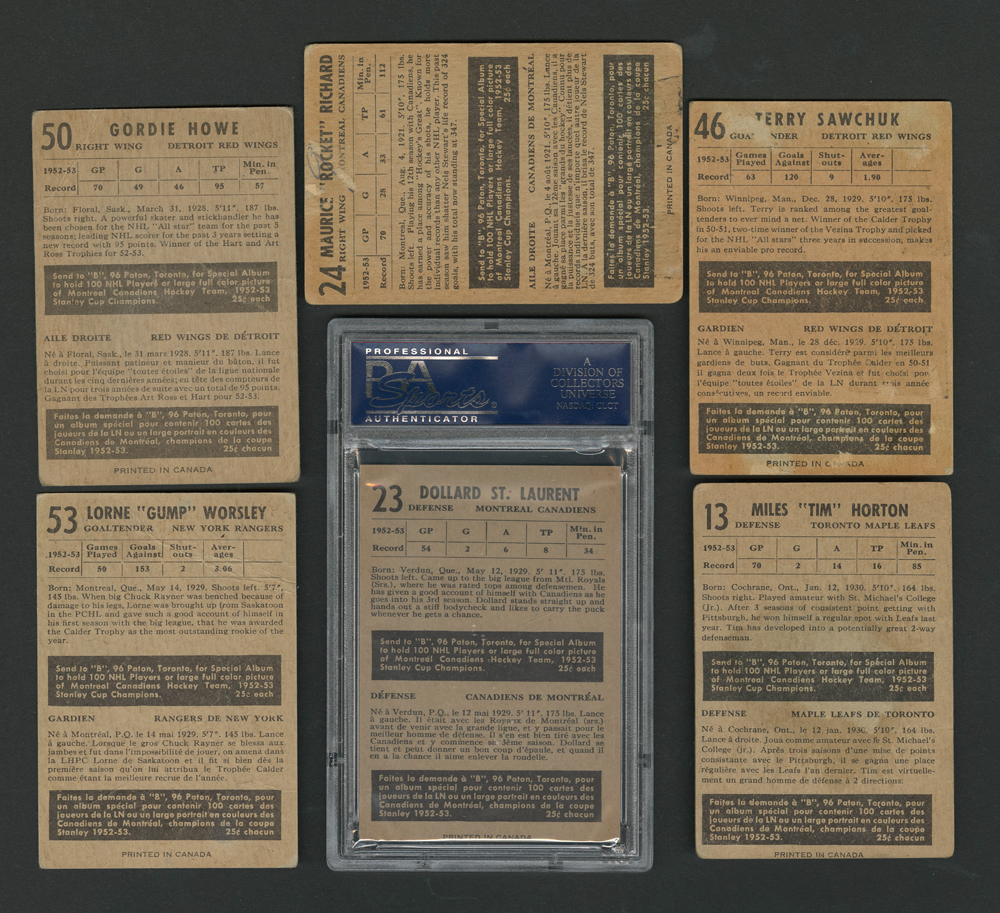 50 GORDIE HOWE
RIGHT WING DETROIT RED WINGS
1952-53 GP G A TP Min. in Pen.
Record 70 49 46 95 57
Born: Floral, Sask., March 31, 1928. 5'11". 187 lbs.
Shoots right. A powerful skater and stickhandler he has
been chosen for the NHL "All star" team for the past 5
seasons; leading NHL scorer for the past 3 years setting a
new record with 95 points. Winner of the Hart and Art
Ross Trophies for 52-53.
Send to "B", 96 Paton, Toronto, for Special Album
to hold 100 NHL Players or large full color picture
of Montreal Canadiens Hockey Team, 1952-53
Stanley Cup Champions. 25¢ each
AILE DROITE RED WINGS DE DÉTROIT
Né à Floral, Sask., le 31 mars 1928. 5'11". 187 lbs. Lance
à droite. Puissant patineur et manieur du bâton, il fut
choisi pour l'équipe "toutes étoiles" de la ligue nationale
durant les cinq dernières années; en tête des compteurs de
la LN pour trois années de suite avec un total de 95 points.
Gagnant des Trophées Art Ross et Hart pour 52-53.
Faites la demande à "B", 96 Paton, Toronto, pour
un album spécial pour contenir 100 cartes des
joueurs de la LN ou un large portrait en couleurs des
Canadiens de Montréal, champions de la coupe
Stanley 1952-53. 25¢ chacun
PRINTED IN CANADA
24 MAURICE "ROCKET" RICHARD
RIGHT WING MONTREAL CANADIENS
1952-53 GP G A TP Min. in Pen.
Record 70 28 33 61 112
Born: Montreal, Que., Aug. 4, 1921. 5'10". 175 lbs.
Shoots left. Playing his 12th season with Canadiens, he
has earned a place among "Hockey's Great". Known for
the power and accuracy of his shots, he holds more
individual records than any other NHL player. This past
season saw him shatter Nels Stewart's life record of 324
goals, with his total now standing at 347.
Send to "B", 96 Paton, Toronto, for Special Album
to hold 100 NHL Players or large full color picture
of Montreal Canadiens Hockey Team, 1952-53
Stanley Cup Champions. 25¢ each
AILE DROITE CANADIENS DE MONTRÉAL
Né à Montréal, P.Q. le 4 août 1921. 5'10". 175 lbs. Lance
à gauche. Jouant sa 12ème saison avec les Canadiens, il a
gagné sa place parmi les "grands du hockey". Connu pour
la puissance et la justesse de ses lancées, il détient plus de
records individuels que n'importe quel autre joueur de la
LN. A la dernière saison, il brisa le record de Nels Stewart
de 324 buts, avec son total de 347.
Faites la demande à "B", 96 Paton, Toronto, pour
un album spécial pour contenir 100 cartes des
joueurs de la LN ou un large portrait en couleurs des
Canadiens de Montréal, champions de la coupe
Stanley 1952-53. 25¢ chacun
PRINTED IN CANADA
46 TERRY SAWCHUK
GOA NDER DETROIT RED WINGS
1952-53 Games Played Goals Against Shut-outs Aver-ages
Record 63 120 9 1.90
Born: Winnipeg, Man., Dec. 28, 1929. 5'10". 175 lbs.
Shoots left. Terry is ranked among the greatest goal-
tenders to ever mind a net. Winner of the Calder Trophy
in 50-51, two-time winner of the Vezina Trophy and picked
for the NHL "All stars" three years in succession, makes
his an enviable pro record.
Send to "B", 96 Paton, Toronto, for Special Album
to hold 100 NHL Players or large full color picture
of Montreal Canadiens Hockey Team, 1952-53
Stanley Cup Champions. 25¢ each
GARDIEN RED WINGS DE DÉTROIT
Né à Winnipeg, Man., le 28 déc. 1929. 5'10". 175 lbs.
Lance à gauche. Terry est considéré parmi les meilleurs
gardiens de buts. Gagnant du Trophée Calder en 50-51
il gagna deux fois le Trophée Vezina et fut choisi pour
l'équipe "toutes étoiles" de la LN durant trois années
consécutives, un record enviable.
Faites la demande à "B", 96 Paton, Toronto, pour
un album spécial pour contenir 100 cartes des
joueurs de la LN ou un large portrait en couleurs des
Canadiens de Montréal, champions de la coupe
Stanley 1952-53. 25¢ chacun
PRINTED IN CANADA
PROFESSIONAL
PSA
Sports
AUTHENTICATOR
A
DIVISION OF
COLLECTORS
UNIVERSE
NASDAQ: CLCT
53 LORNE "GUMP" WORSLEY
GOALTENDER NEW YORK RANGERS
1952-53 Games Played Goals Against Shut-outs Aver-ages
Record 50 153 2 3.06
Born: Montreal, Que., May 14, 1929. Shoots left. 5'7".
145 lbs. When big Chuck Rayner was benched because of
damage to his legs, Lorne was brought up from Saskatoon
in the PCHL and gave such a good account of himself in
his first season with the big league, that he was awarded
the Calder Trophy as the most outstanding rookie of the
year.
Send to "B", 96 Paton, Toronto, for Special Album
to hold 100 NHL Players or large full color picture
of Montreal Canadiens Hockey Team, 1952-53
Stanley Cup Champions. 25¢ each
GARDIEN RANGERS DE NEW YORK
Né à Montréal, P.Q. le 14 mai 1929. 5'7". 145 lbs. Lance
à gauche. Lorsque le gros Chuck Rayner se blessa aux
jambes et fut dans l'impossibilité de jouer, on amena dans
la LHPC Lorne de Saskatoon et il fit si bien dès la
première saison qu'on lui attribua le Trophée Calder
comme étant la meilleure recrue de l'année.
Faites la demande à "B", 96 Paton, Toronto, pour
un album spécial pour contenir 100 cartes des
joueurs de la LN ou un large portrait en couleurs des
Canadiens de Montréal, champions de la coupe
Stanley 1952-53. 25¢ chacun
PRINTED IN CANADA
23 DOLLARD ST. LAURENT
DEFENSE MONTREAL CANADIENS
1952-53 GP G A TP Min. in Pen.
Record 54 2 6 8 34
Born: Verdun, Que., May 12, 1929. 5' 11". 175 lbs.
Shoots left. Came up to the big league from Mtl. Royals
(Srs.), where he was rated tops among defensemen. He
has given a good account of himself with Canadiens as he
goes into his 3rd season. Dollard stands straight up and
hands out a stiff bodycheck and likes to carry the puck
whenever he gets a chance.
Send to "B", 96 Paton, Toronto, for Special Album
to hold 100 NHL Players or large full color picture
of Montreal Canadiens Hockey Team, 1952-53
Stanley Cup Champions. 25¢ each
DÉFENSE CANADIENS DE MONTRÉAL
Né à Verdun, P.Q., le 12 mai 1929. 5' 11". 175 lbs. Lance
à gauche. Il était avec les Royaux de Montréal (srs.)
avant de venir avec la grande ligue, et y passait pour le
meilleur homme de défense. Il s'en est bien tiré avec les
Canadiens et y commence sa 3ème saison. Dollard se
tient et peut donner un bon coup d'épaule, et quand il
en a la chance il aime enlever la rondelle.
Faites la demande à "B", 96 Paton, Toronto, pour
un album spécial pour contenir 100 cartes des
joueurs de la LN ou un large portrait en couleurs des
Canadiens de Montréal, champions de la coupe
Stanley 1952-53. 25¢ chacun
PRINTED IN CANADA
13 MILES "TIM" HORTON
DEFENSE TORONTO MAPLE LEAFS
1952-53 GP G A TP Min. in Pen.
Record 70 2 14 16 85
Born: Cochrane, Ont., Jan. 12, 1930. 5'10". 164 lbs.
Shoots right. Played amateur with St. Michael's College
(Jr.). After 3 seasons of consistent point getting with
Pittsburgh, he won himself a regular spot with Leafs last
year. Tim has developed into a potentially great 2-way
defenseman.
Send to "B", 96 Paton, Toronto, for Special Album
to hold 100 NHL Players or large full color picture
of Montreal Canadiens Hockey Team, 1952-53
Stanley Cup Champions. 25¢ each
DEFENSE MAPLE LEAFS DE TORONTO
Né à Cochrane, Ont., le 12 jan. 1930. 5'10". 164 lbs.
Lance à droite. Joua comme amateur avec le St. Michael's
College (jr.). Après trois saisons d'une mise de points
consistante avec le Pittsburgh, il se gagna une place
régulière avec les Leafs l'an dernier. Tim est virtuelle-
ment un grand homme de défense à 2 directions.
Faites la demande à "B", 96 Paton, Toronto, pour
un album spécial pour contenir 100 cartes des
joueurs de la LN ou un large portrait en couleurs des
Canadiens de Montréal, champions de la coupe
Stanley 1952-53. 25¢ chacun
PRINTED IN CANADA